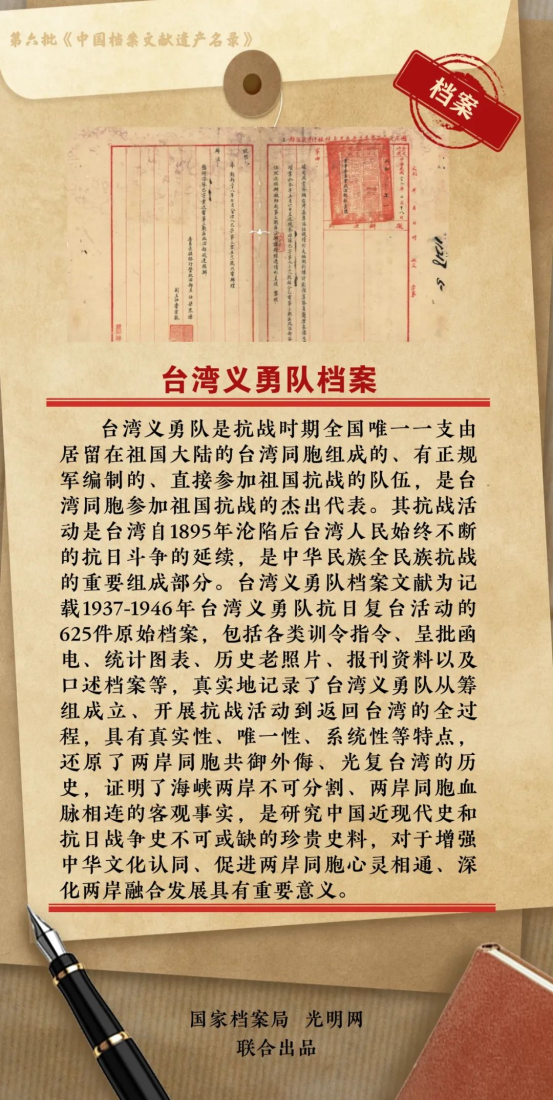 第六批《中国档案文献遗产名录》
档案
台湾义勇队档案
台湾义勇队是抗战时期全国唯一一支由
居留在祖国大陆的台湾同胞组成的、有正规
军编制的、直接参加祖国抗战的队伍，是台
湾同胞参加祖国抗战的杰出代表。其抗战活
动是台湾自1895年沦陷后台湾人民始终不断
的抗日斗争的延续，是中华民族全民族抗战
的重要组成部分。台湾义勇队档案文献为记
载1937-1946年台湾义勇队抗日复台活动的
625件原始档案，包括各类训令指令、呈批函
电、统计图表、历史老照片、报刊资料以及
口述档案等，真实地记录了台湾义勇队从筹
组成立、开展抗战活动到返回台湾的全过
程，具有真实性、唯一性、系统性等特点，
还原了两岸同胞共御外侮、光复台湾的历
史，证明了海峡两岸不可分割、两岸同胞血
脉相连的客观事实，是研究中国近现代史和
抗日战争史不可或缺的珍贵史料，对于增强
中华文化认同、促进两岸同胞心灵相通、深
化两岸融合发展具有重要意义。
国家档案局 光明网
联合出品